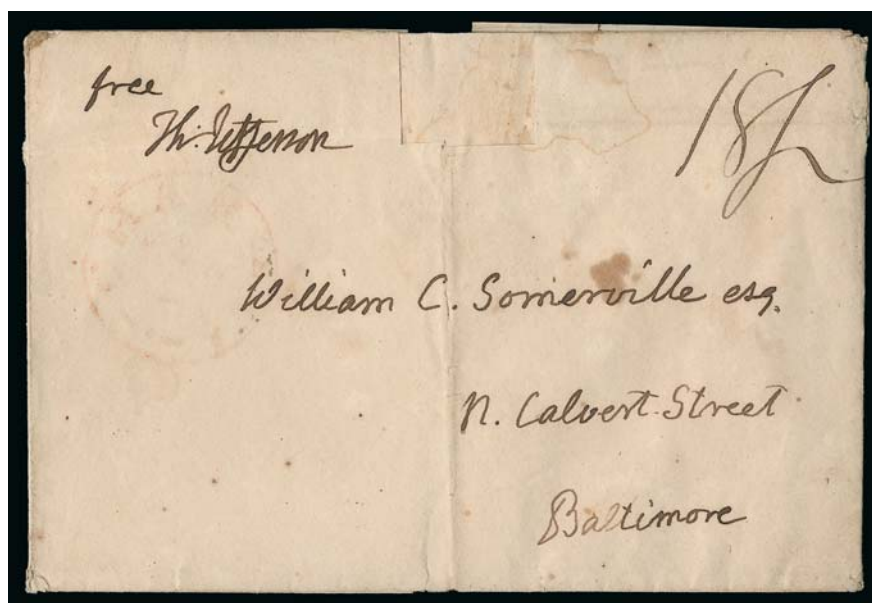 free
Th: Jefferson
William C. Somerville esq.
N. Calvert Street
Baltimore